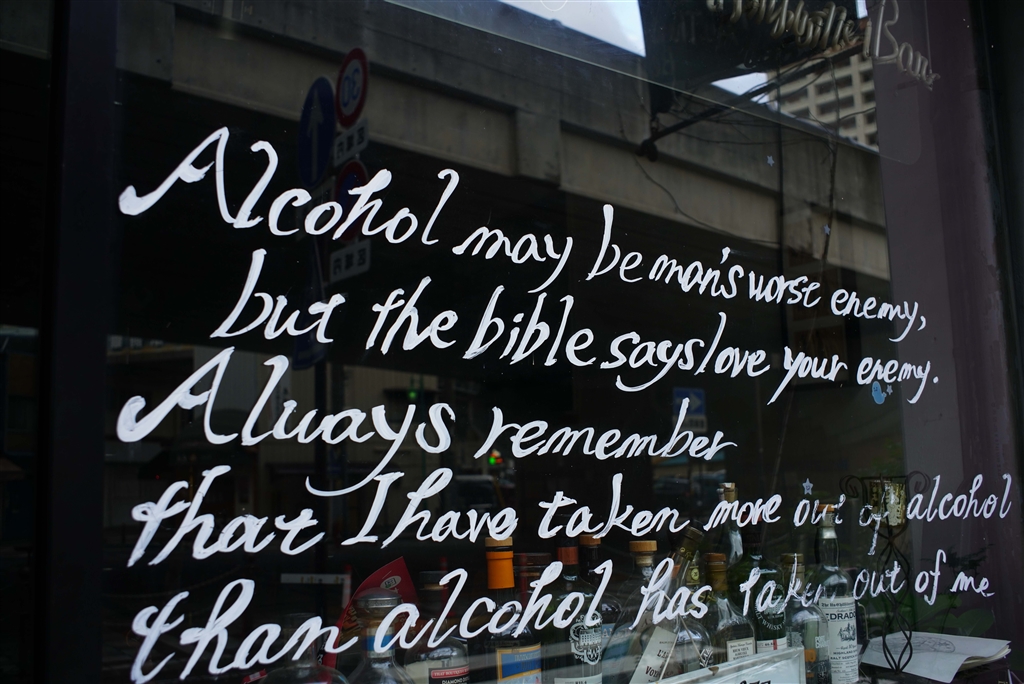 Alcohol may be man's worse enemy,
but the bible says love your enemy.
Always remember
that I have taken more out of alcohol
than alcohol has taken out of me